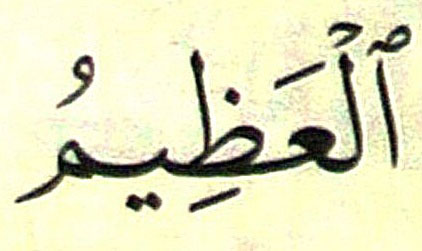 ٱلْعَظِيمُ